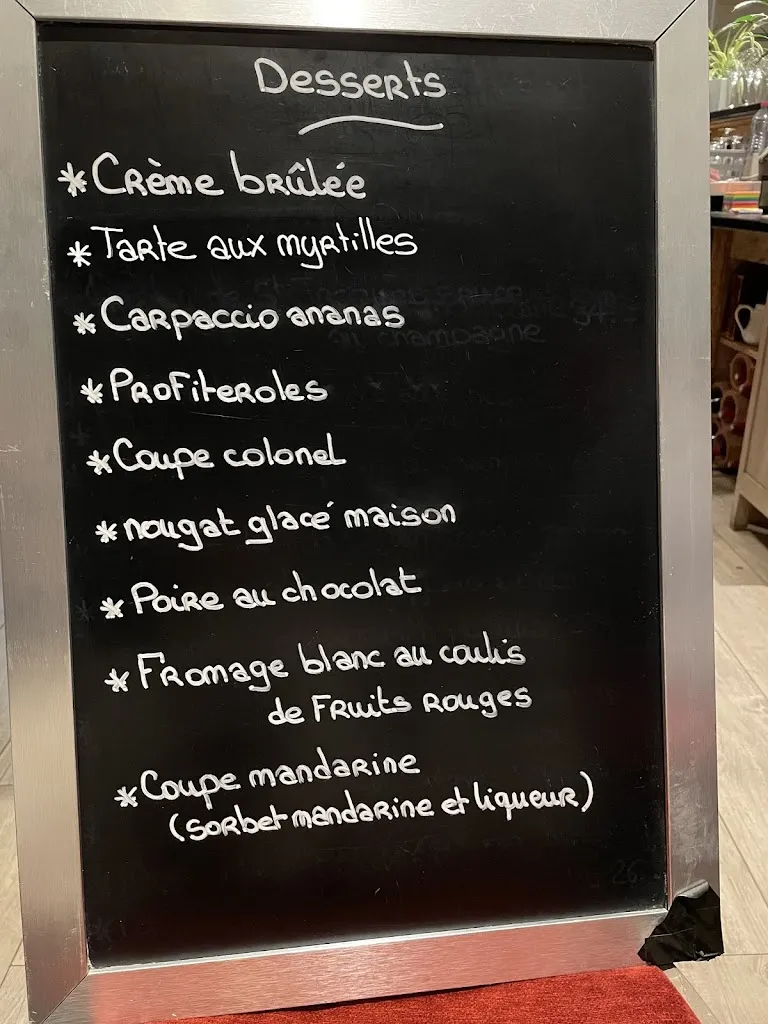 Desserts
* Crème brûlée
* Tarte aux myrtilles
* Carpaccio ananas
* Profiteroles
* Coupe colonel
* nougat glacé maison
* Poire au chocolat
* Fromage blanc au coulis
de Fruits Rouges
* Coupe mandarine
(sorbet mandarine et liqueur)